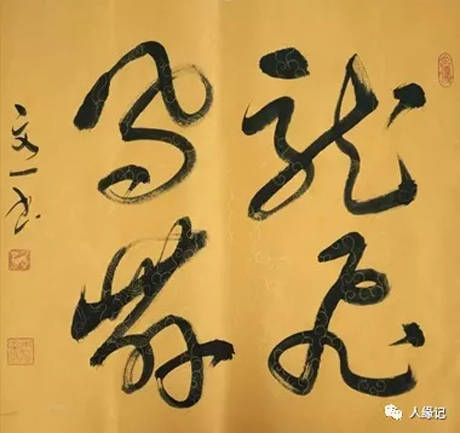 龙飞
凤舞
文一书
人缘记